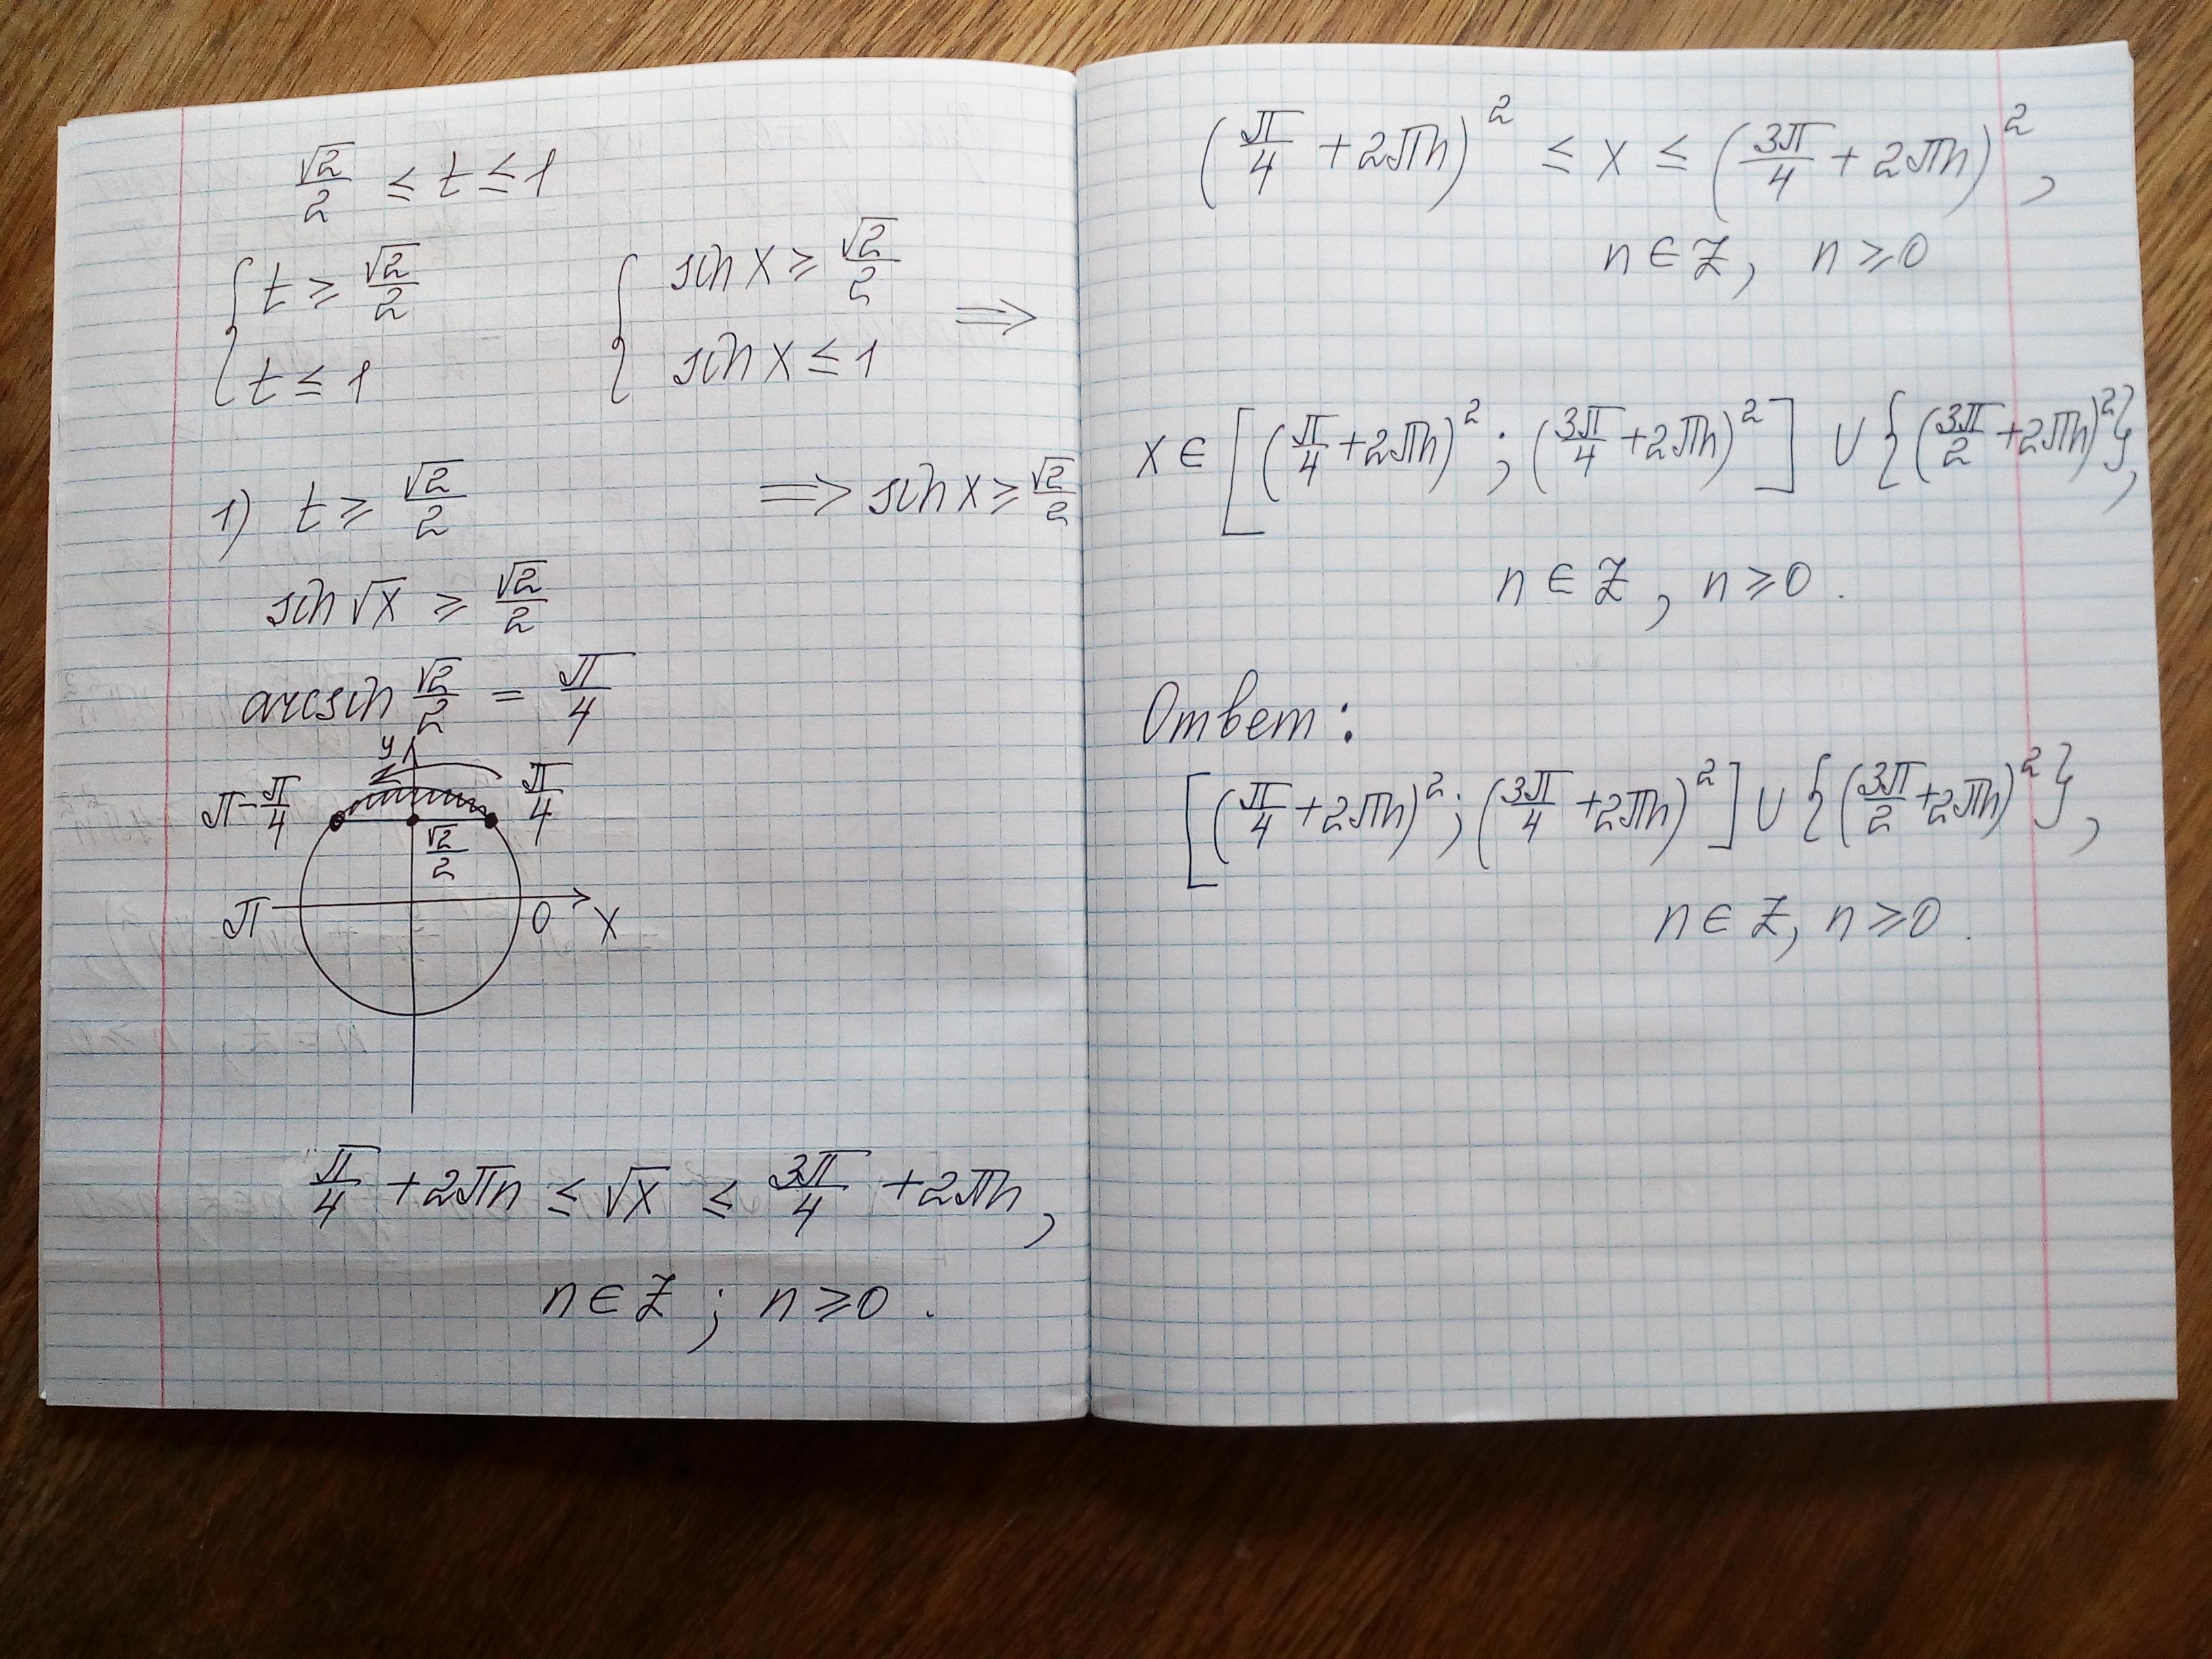 √2/2 ≤ t ≤ 1
{ t ≥ √2/2
{ t ≤ 1
{ sin x ≥ √2/2
{ sin x ≤ 1
⟹
1) t ≥ √2/2 ⟹ sin x ≥ √2/2
sin √x ≥ √2/2
arcsin √2/2 = π/4
y
π - π/4
π/4
√2/2
π
0
x
π/4 + 2πn ≤ √x ≤ 3π/4 + 2πn,
n ∈ Z; n ≥ 0.
(π/4 + 2πn)² ≤ x ≤ (3π/4 + 2πn)²,
n ∈ Z, n ≥ 0
x ∈ [(π/4 + 2πn)²; (3π/4 + 2πn)²] ∪ {(3π/2 + 2πn)²},
n ∈ Z, n ≥ 0.
Ответ:
[(π/4 + 2πn)²; (3π/4 + 2πn)²] ∪ {(3π/2 + 2πn)²},
n ∈ Z, n ≥ 0.